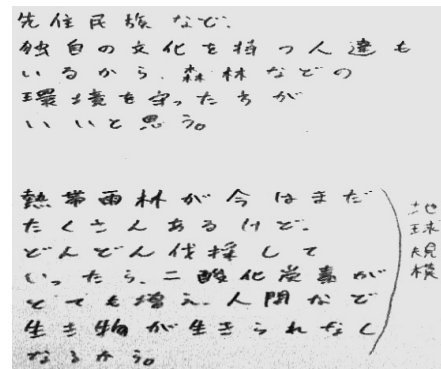 先住民族など、
独自の文化を持つ人達も
いるから、森林などの
環境を守ったちが
いいと思う。
熱帯雨林が今はまだ
たくさんあるけど、
どんどん伐採して
いったら、二酸化炭素が
とても増え、人間など
生き物が生きられなく
なるから。
地球規模